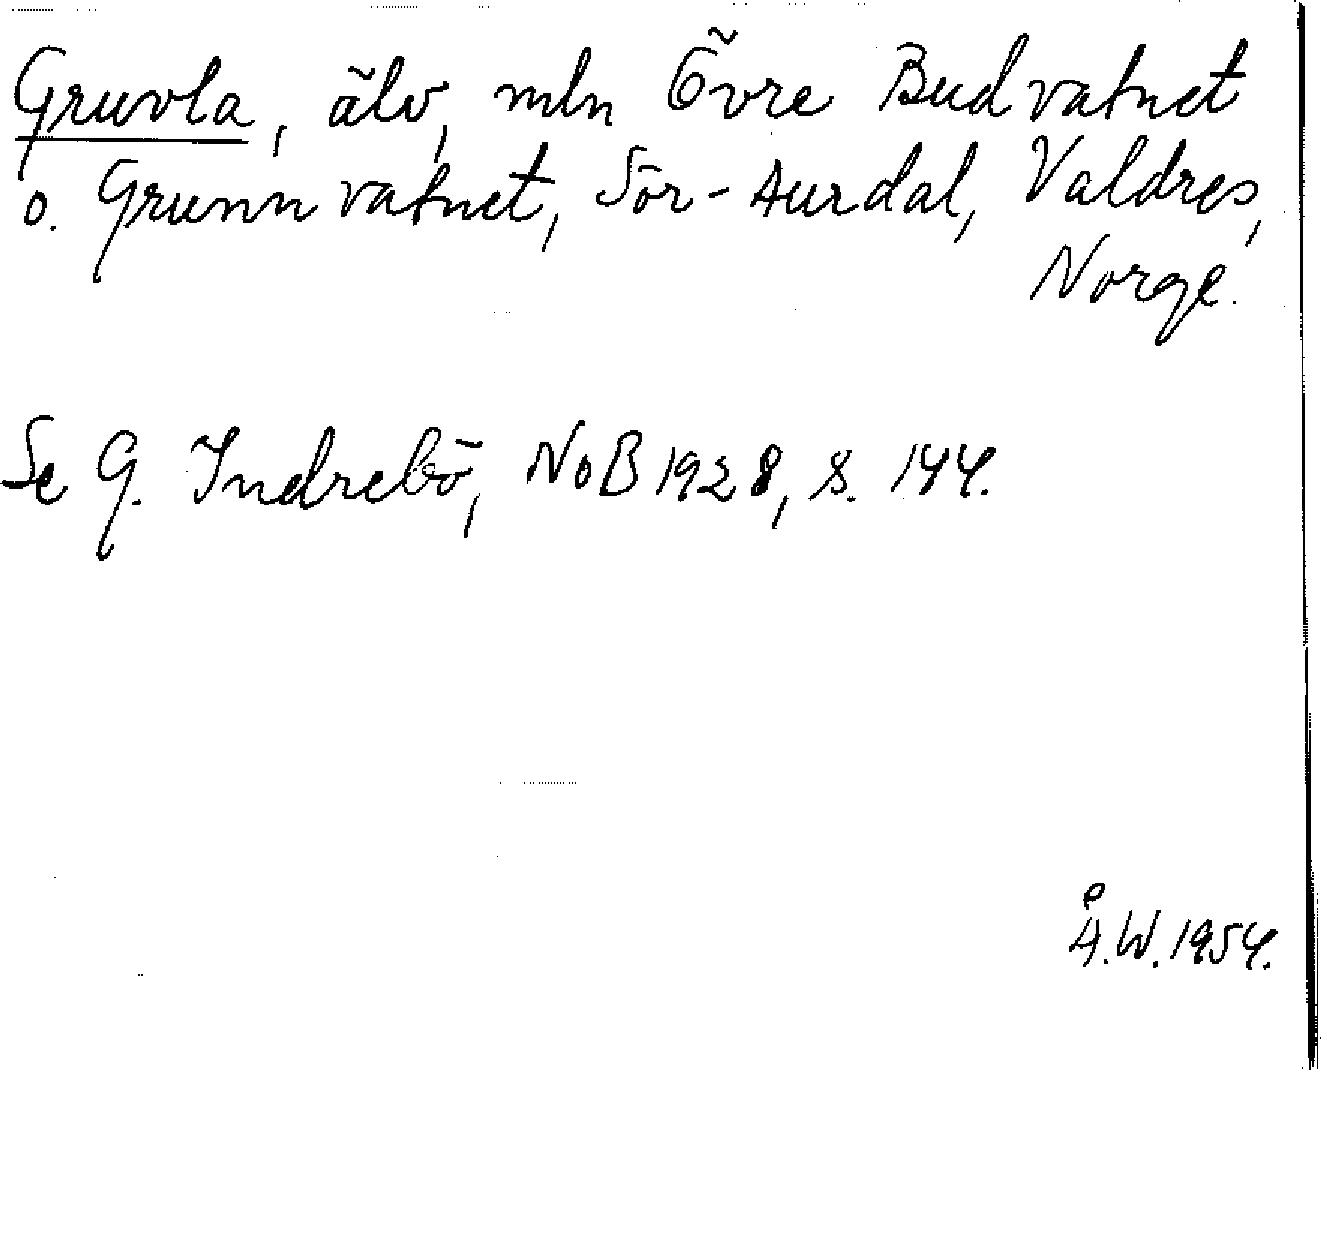 Gruvla, älv, mln Övre Budvatnet
o. Grunnvatnet, Sör-Aurdal, Valdres,
Norge.
Se G. Indrebö, NoB 1928, s. 144.
Å.W. 1954.